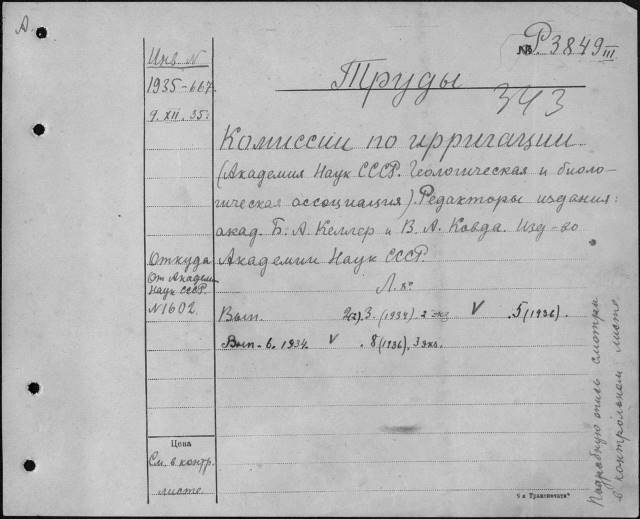 А.
№ Р3849 III
Инв. N
1935-667.
9. XII. 35.
Труды
343
Комиссии по ирригации
(Академия Наук СССР. Геологическая и биоло-
гическая ассоциация). Редакторы издания:
акад. Б. А. Келлер и В. А. Ковда. Изд-во
Академии Наук СССР.
Откуда
От Академи
Наук СССР.
N 1602.
Л. 8°
Вып. 3. (1934) 2 экз V .5 (1936).
Вып-6. 1934. V .8 (1936), 3 экз.
Цена
См. в контр.
листе.
Подробную опись смотри
в контрольном листе.